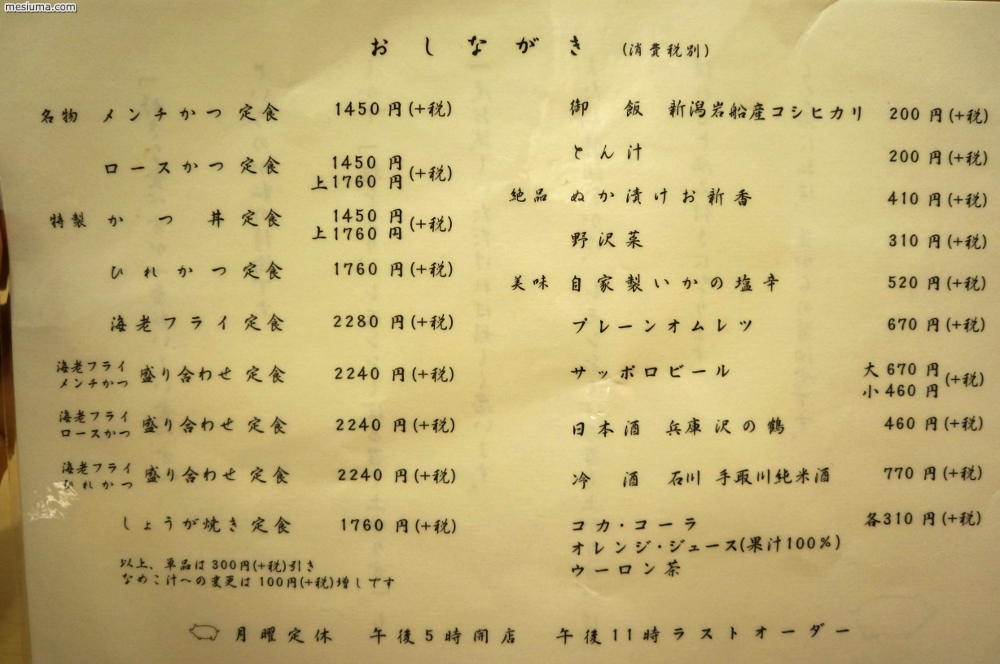 mesiuma.com
おしながき (消費税別)
名物 メンチかつ定食 1450円(+税)
ロースかつ定食 1450円 上1760円 (+税)
特製 かつ丼定食 1450円 上1760円 (+税)
ひれかつ定食 1760円(+税)
海老フライ定食 2280円(+税)
海老フライ メンチかつ 盛り合わせ定食 2240円(+税)
海老フライ ロースかつ 盛り合わせ定食 2240円(+税)
海老フライ ひれかつ 盛り合わせ定食 2240円(+税)
しょうが焼き定食 1760円(+税)
以上、単品は300円(+税)引き
なめこ汁への変更は100円(+税)増しです
御飯 新潟岩船産コシヒカリ 200円(+税)
とん汁 200円(+税)
絶品 ぬか漬けお新香 410円(+税)
野沢菜 310円(+税)
美味 自家製いかの塩辛 520円(+税)
プレーンオムレツ 670円(+税)
サッポロビール 大670円 小460円 (+税)
日本酒 兵庫 沢の鶴 460円(+税)
冷酒 石川 手取川純米酒 770円(+税)
コカ・コーラ 各310円(+税)
オレンジ・ジュース(果汁100%)
ウーロン茶
月曜定休 午後5時開店 午後11時ラストオーダー